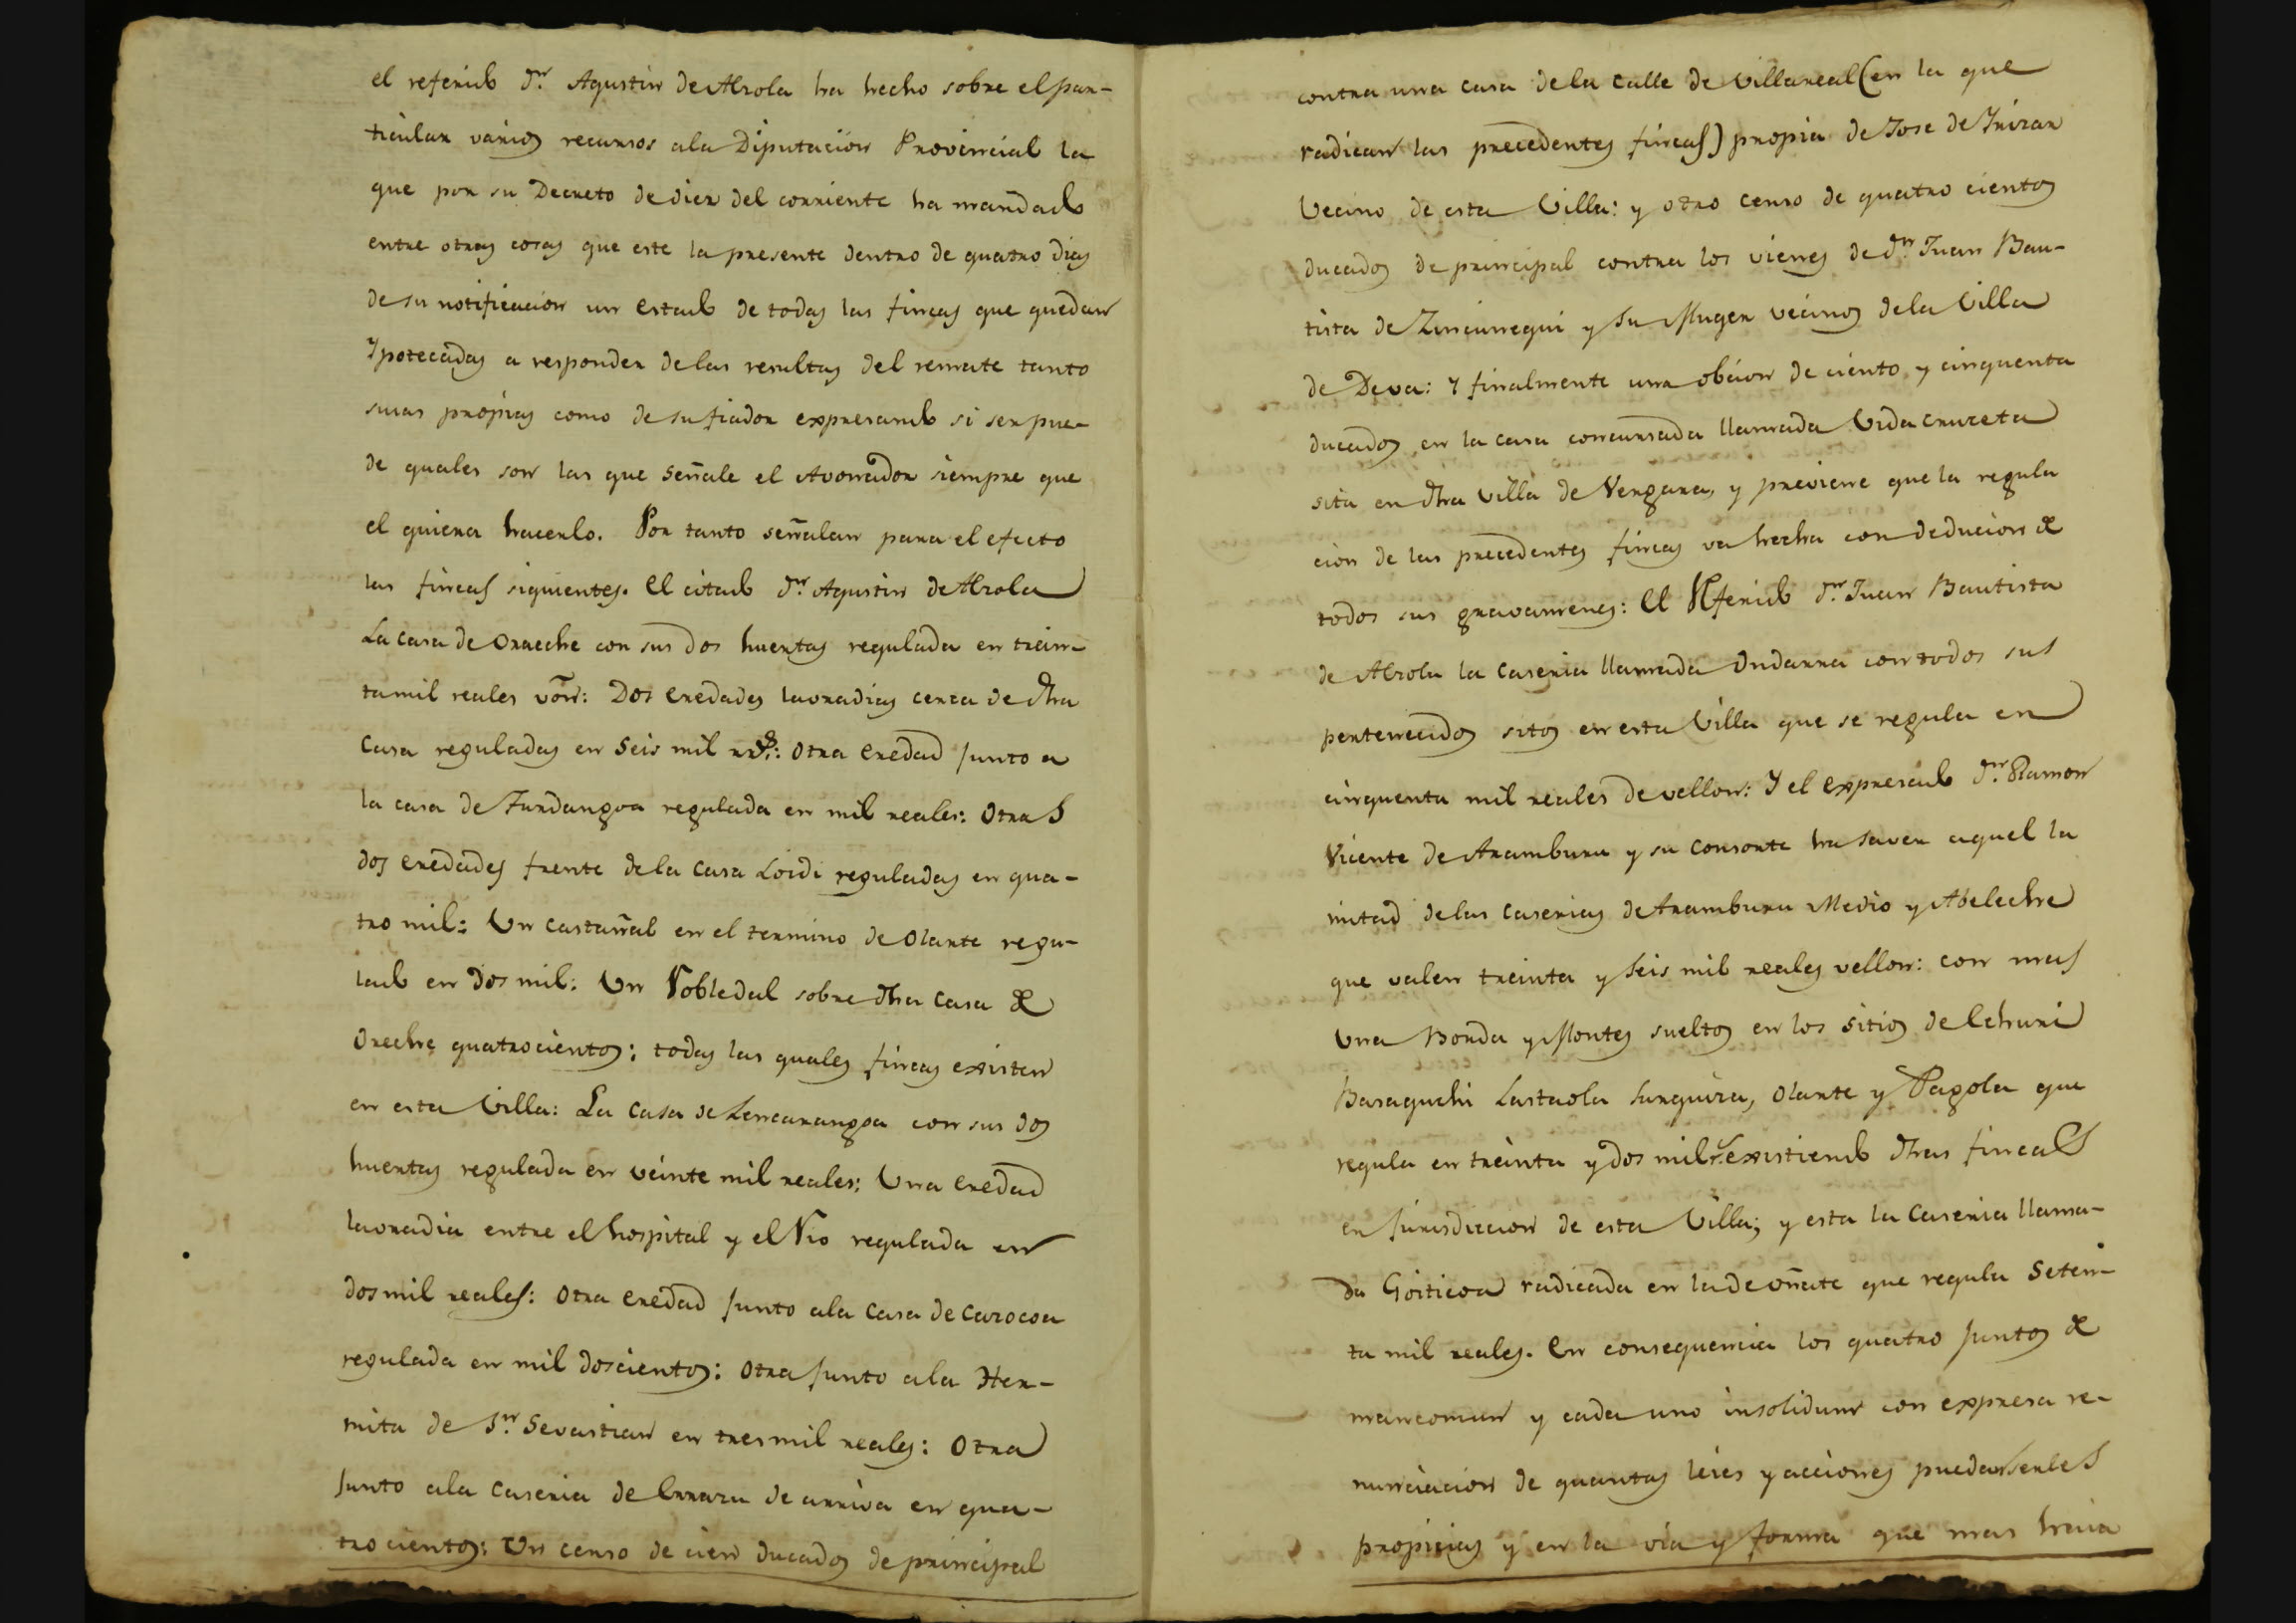 el referido Dn. Agustin de Alzola ha hecho sobre el par-
ticular varios recursos ala Diputacion Provincial la
que por su Decreto de diez del corriente ha mandado
entre otras cosas que este la presente dentro de quatro dias
de su notificacion un estado de todas las fincas que quedan
Ypotecadas a responder delas resultas del remate tanto
suias propias como de su fiador expresando si ser pue-
de quales son las que señale el Avonador siempre que
el quiera hacerlo. Por tanto señalan para el efecto
las fincas siguientes. El citado Dn. Agustin de Alzola
La casa de Oraeche con sus dos huertas regulada en trein-
ta mil reales von: Dos eredades lavradias cerca de dha
casa reguladas en seis mil rrs: otra eredad junto a
la casa de Jundangoa regulada en mil reales: Otras
dos eredades frente dela casa Loidi reguladas en qua-
tro mil: Un castañal en el termino de Olarte regu-
lado en dos mil: Un Robledal sobre dha casa de
Oreche quatrocientos: todas las quales fincas existen
en esta Villa: La casa de Lencarangoa con sus dos
huertas regulada en veinte mil reales: Una eredad
lavradia entre el hospital y el Rio regulada en
dos mil reales: Otra eredad junto ala casa de Carocoa
regulada en mil doscientos: Otra junto ala Her-
mita de Sn. Sevastian en tres mil reales: Otra
junto ala caseria de Errazu de arriva en qua-
trocientos: Un censo de cien ducados de principal
contra una casa dela calle de Villareal (en la que
radican las precedentes fincas) propia de Jose de Yrizar
Vecino de esta Villa: y otro censo de quatro cientos
ducados de principal contra los vienes de Dn. Juan Bau-
tista de Zincunegui y su Muger vecinos dela Villa
de Deva: Y finalmente una obcion de ciento y cinquenta
ducados en la casa concursada llamada Vidacruceta
sita en dha villa de Vergara, y previene que la regula
cion de las precedentes fincas va hecha con deducion de
todos sus gravamenes: El Referido Dn. Juan Bautista
de Alzola la caseria llamada Ondarra con todos sus
pertenecidos sitos en esta Villa que se regula en
cinquenta mil reales de vellon: Y el expresado Dn. Ramon
Vicente de Aramburu y su consorte ha saver aquel la
mitad delas caserias de Aramburu Medio y Abeleche
que valen treinta y seis mil reales vellon: con mas
Una Borda y Montes sueltos en los sitios de Echuni
Basaguchi Lastaola Sunguira, Olarte y Pagola que
regula en treinta y dos mil rs. existiendo dhas fincas
en jurisdiccion de esta Villa; y esta la Caseria llama-
da Goiticoa radicada en la de Oñate que regula Seten-
ta mil reales. En consequencia los quatro juntos de
mancomun y cada uno insolidum con expresa re-
nunciacion de quantas leies y acciones puedan serles
propicias y en la via y forma que mas haia